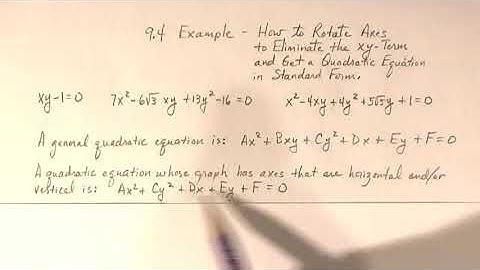 9.4 Example - How to Rotate Axes
to Eliminate the xy-Term
and Get a Quadratic Equation
in Standard Form.
xy-1=0 7x²-6√3 xy+13y²-16=0 x²-4xy+4y²+5√5y+1=0
A general quadratic equation is: Ax²+Bxy+Cy²+Dx+Ey+F=0
A quadratic equation whose graph has axes that are horizontal and/or
vertical is: Ax²+Cy²+Dx+Ey+F=0